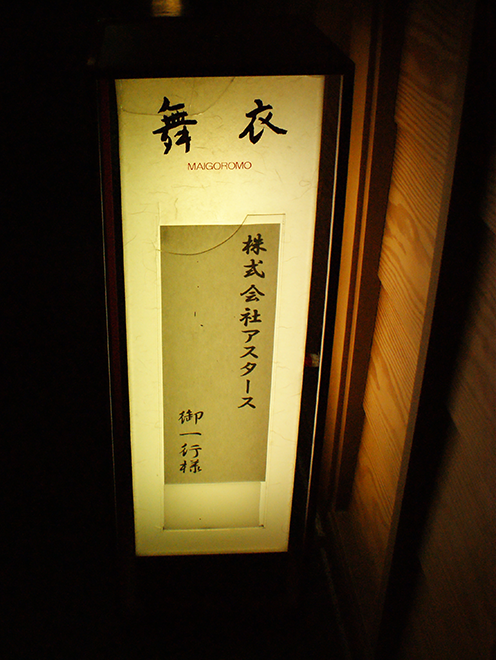 舞衣
MAIGOROMO
株式会社アスタース
御一行様